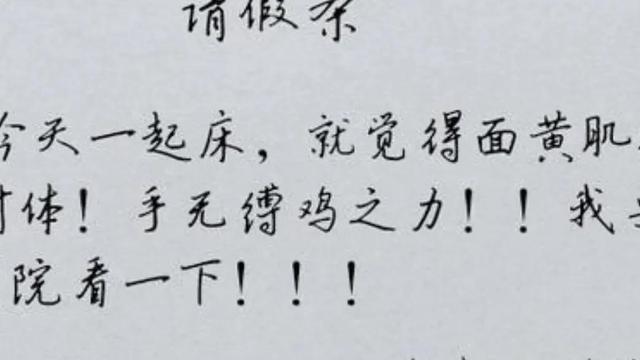 请假条
今天一起床，就觉得面黄肌
体！手无缚鸡之力！！我
院看一下！！！